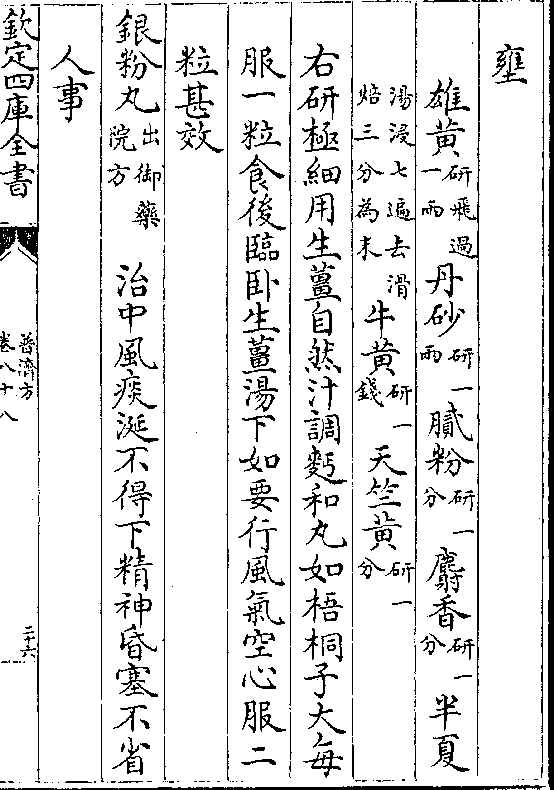 壅
雄黄研飛過一兩 丹砂研一兩 膩粉研一分 麝香研一分 半夏
湯浸七遍去滑焙三分為末 牛黄研一錢 天竺黄研一分
右研極細用生薑自然汁調麫和丸如梧桐子大每
服一粒食後臨卧生薑湯下如要行風氣空心服二
粒甚效
銀粉丸出御藥院方 治中風痰涎不得下精神昏塞不省
人事
欽定四庫全書
普濟方
卷八十八
二十六